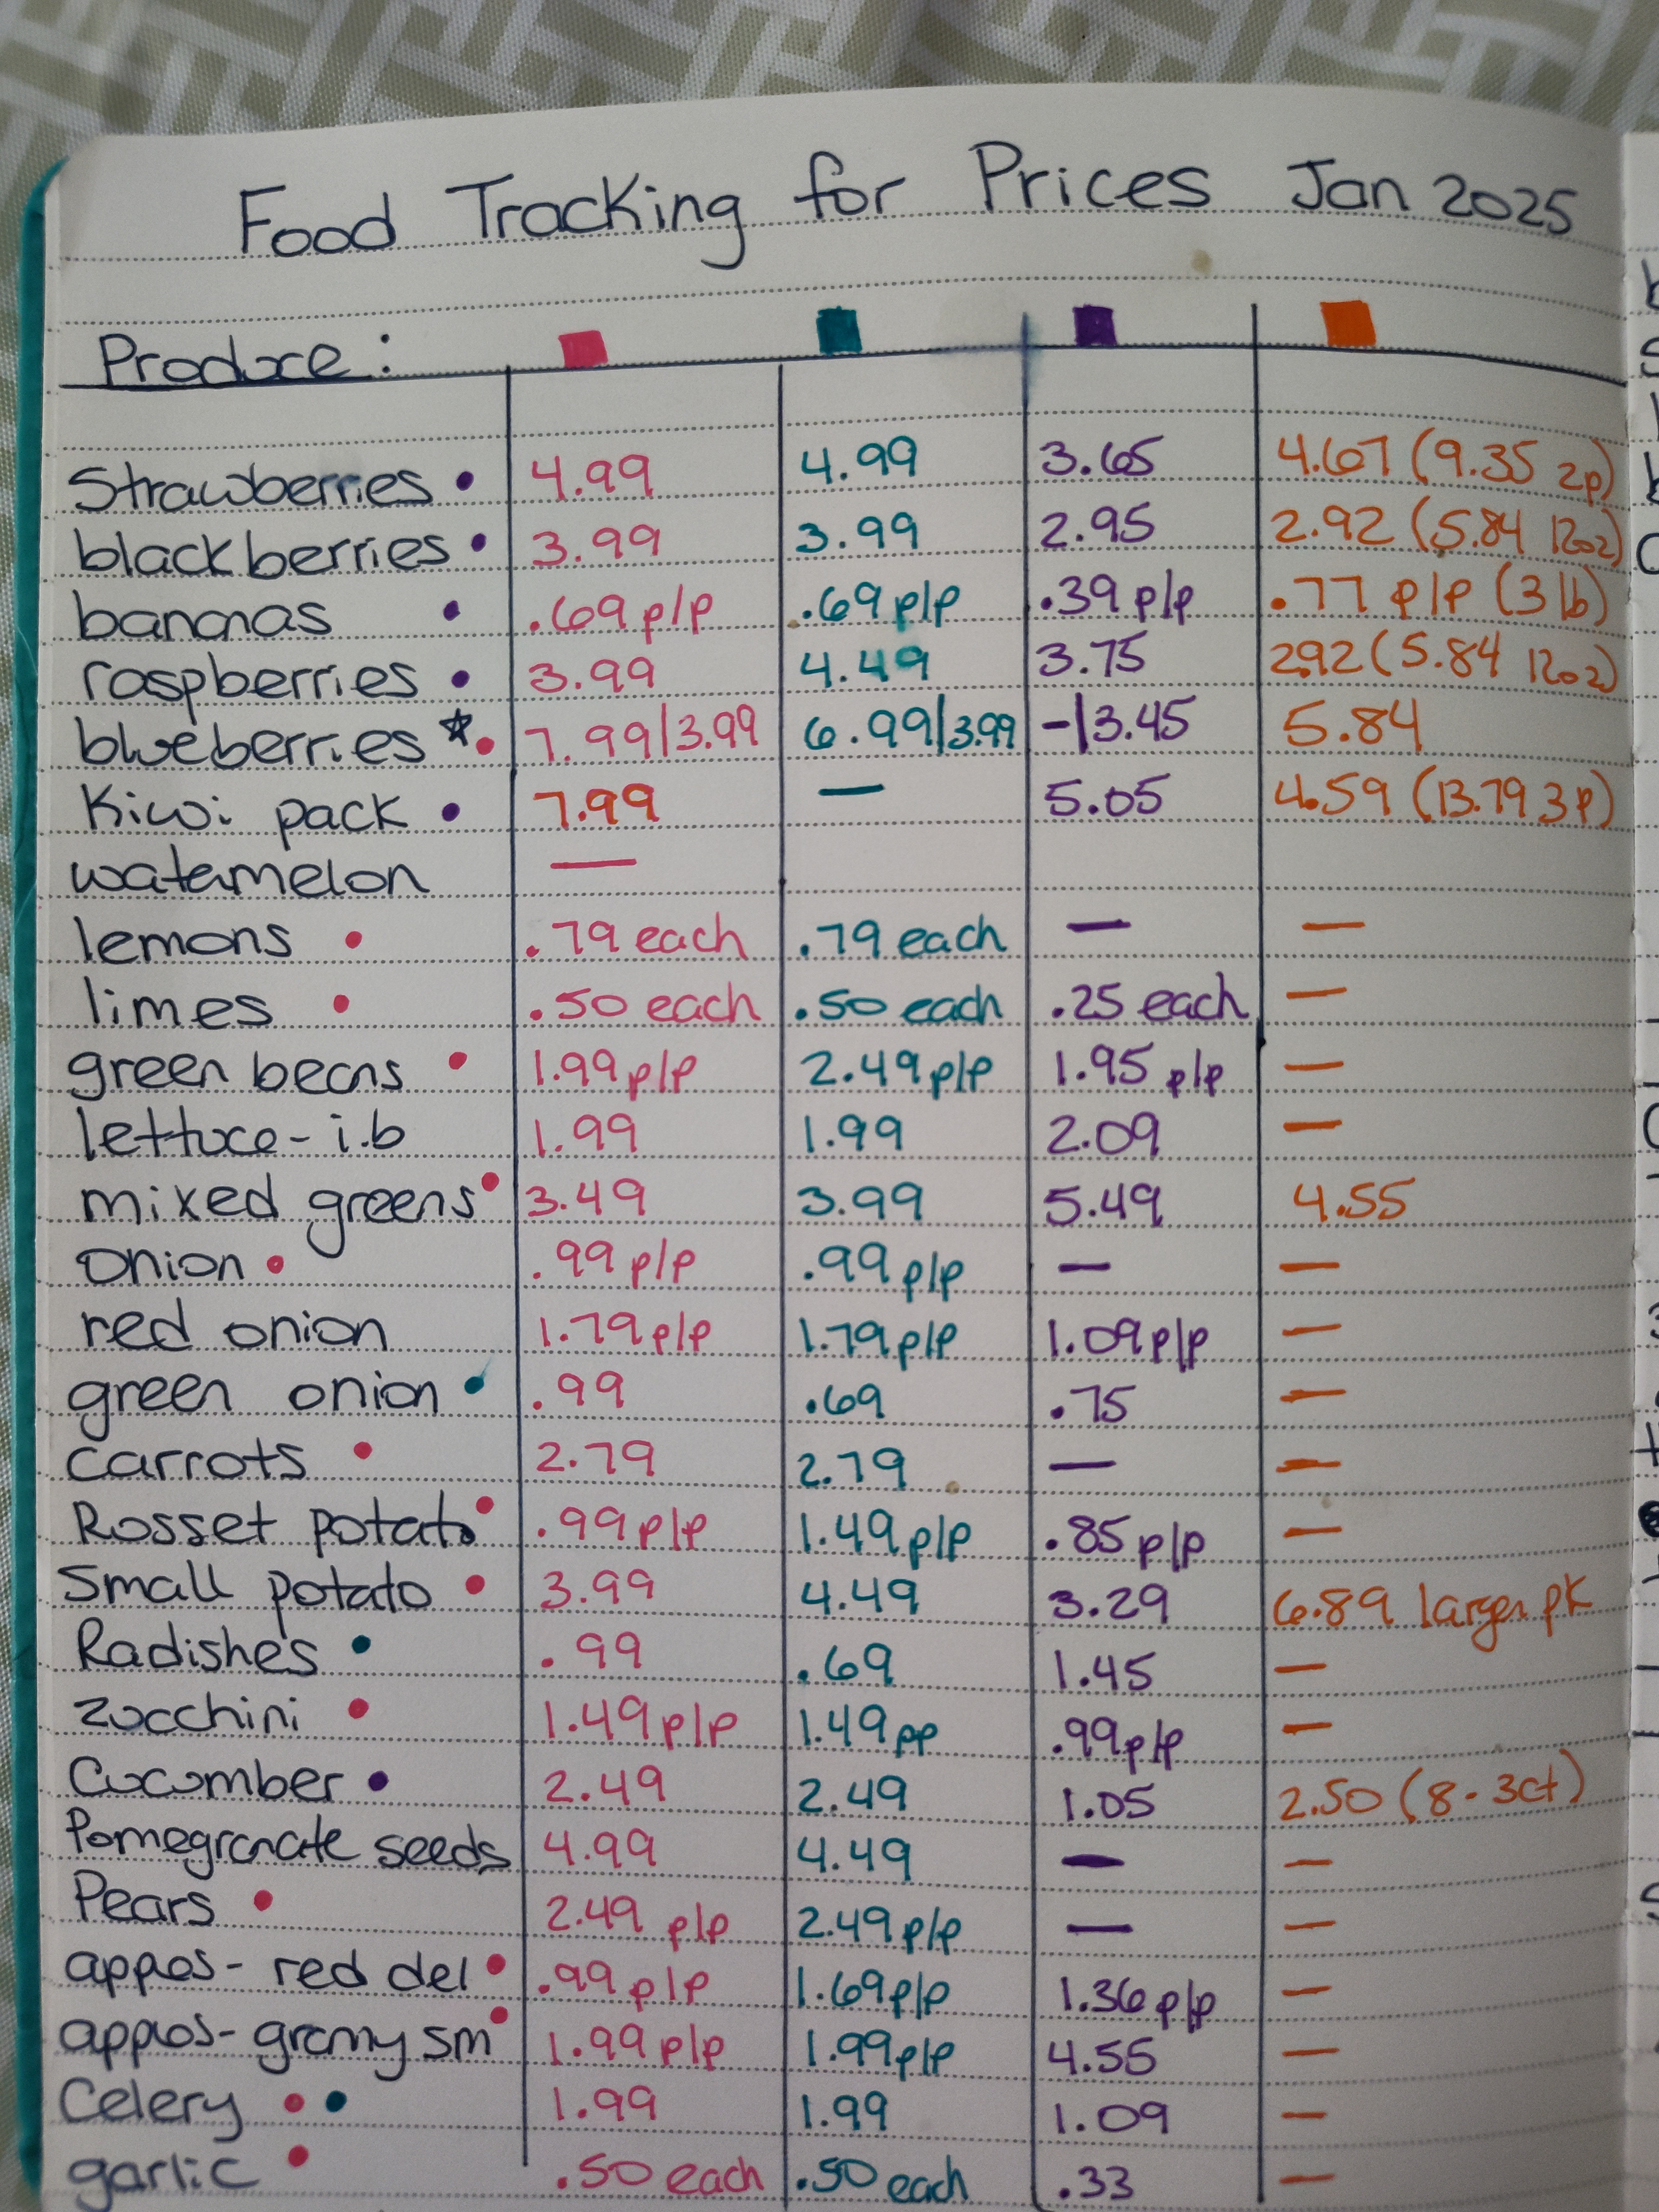 Food Tracking for Prices Jan 2025
Produce:
Strawberries 4.99 4.99 3.65 4.67 (9.35 2p)
blackberries 3.99 3.99 2.95 2.92 (5.84 12oz)
bananas .69 p/p .69 p/p .39 p/p .77 p/p (3 lb)
raspberries 3.99 4.49 3.75 2.92 (5.84 12oz)
blueberries 7.99/3.99 6.99/3.99 -/3.45 5.84
Kiwi pack 7.99 — 5.05 4.59 (13.79 3p)
watermelon —
lemons .79 each .79 each — —
limes .50 each .50 each .25 each —
green beans 1.99 p/p 2.49 p/p 1.95 p/p —
lettuce - i.b 1.99 1.99 2.09 —
mixed greens 3.49 3.99 5.49 4.55
Onion .99 p/p .99 p/p — —
red onion 1.79 p/p 1.79 p/p 1.09 p/p —
green onion .99 .69 .75 —
Carrots 2.79 2.79 — —
Rosset potato .99 p/p 1.49 p/p .85 p/p —
Small potato 3.99 4.49 3.29 6.89 larger pk
Radishes .99 .69 1.45 —
Zucchini 1.49 p/p 1.49 pp .99 p/p —
Cucumber 2.49 2.49 1.05 2.50 (8 - 3ct)
Pomegranate seeds 4.99 4.49 — —
Pears 2.49 p/p 2.49 p/p — —
apples - red del .99 p/p 1.69 p/p 1.36 p/p —
apples - granny sm 1.99 p/p 1.99 p/p 4.55 —
Celery 1.99 1.99 1.09 —
garlic .50 each .50 each .33 —